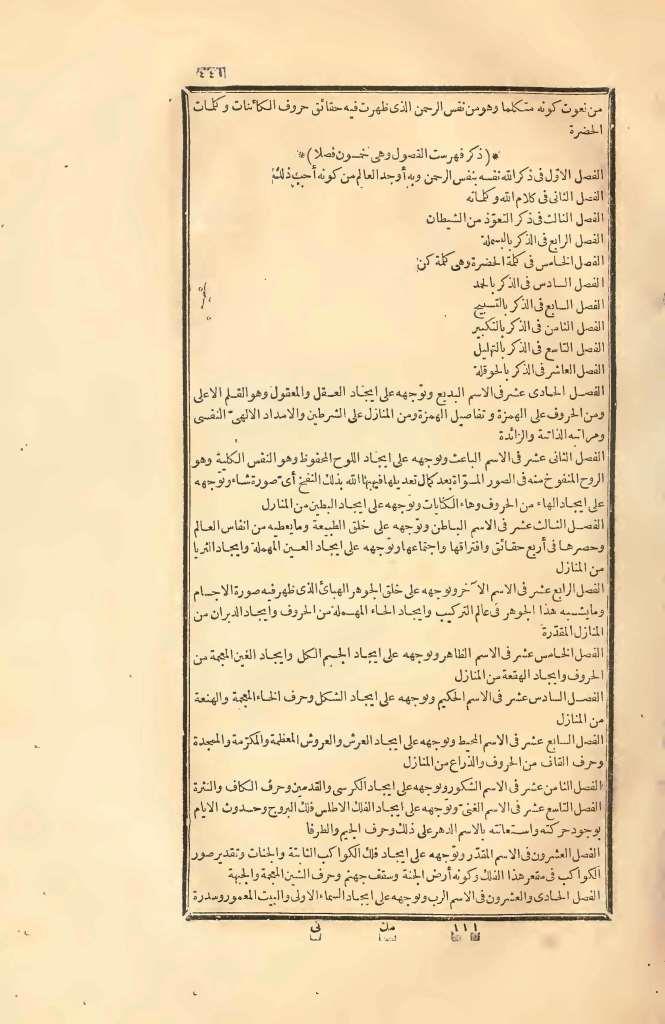 ٤٤٦
من نعوت كونه متكلما وهو من نفس الرحمن الذى ظهرت فيه حقائق حروف الكائنات وكلمات
الحضرة
*(ذكر فهرست الفصول وهى خمسون فصلا)*
الفصل الاوّل فى ذكر الله نفسه بنفس الرحمن وبه أوجد العالم من كونه أحب ذلك
الفصل الثانى فى كلام الله وكلماته
الفصل الثالث فى ذكر التعوّذ من الشيطان
الفصل الرابع فى الذكر بالبسملة
الفصل الخامس فى كلمة الحضرة وهى كلمة كن
الفصل السادس فى الذكر بالحمد
الفصل السابع فى الذكر بالتسبيح
الفصل الثامن فى الذكر بالتكبير
الفصل التاسع فى الذكر بالتهليل
الفصل العاشر فى الذكر بالحوقلة
الفصل الحادى عشر فى الاسم البديع وتوّجهه على ايجاد العقل والمعقول وهو القلم الاعلى
ومن الحروف على الهمزة وتفاصيل الهمزة ومن المنازل على الشرطين والامداد الالهىّ النفسى
ومراتبه الذاتية والزائدة
الفصل الثانى عشر فى الاسم الباعث وتوجهه على ايجاد اللوح المحفوظ وهو النفس الكلية وهو
الروح المنفوخ منه فى الصور المسوّاة بعد كمال تعديلها فيهبها الله بذلك النفخ أىّ صورة شاء وتوّجهه
على ايجاد الهاء من الحروف وهاء الكنايات وتوّجهه على ايجاد البطين من المنازل
الفصل الثالث عشر فى الاسم الباطن وتوّجهه على خلق الطبيعة وما يعطيه من انفاس العالم
وحصرها فى أربع حقائق وافتراقها واجتماعها وتوّجهه على ايجاد العين المهملة وايجاد الثريا
من المنازل
الفصل الرابع عشر فى الاسم الآخر وتوجهه على خلق الجوهر الهبائى الذى ظهر فيه صورة الاجسام
وما يشبه هذا الجوهر فى عالم التركيب وايجاد الحاء المهملة من الحروف وايجاد الدبران من
المنازل المقدّرة
الفصل الخامس عشر فى الاسم الظاهر وتوجهه على ايجاد الجسم الكل وايجاد الغين المعجمة من
الحروف وايجاد الهقعة من المنازل
الفصل السادس عشر فى الاسم الحكيم وتوجهه على ايجاد الشكل وحرف الخاء المعجمة والهنعة
من المنازل
الفصل السابع عشر فى الاسم المحيط وتوجهه على ايجاد العرش والعروش المعظمة والمكرّمة والممجدة
وحرف القاف من الحروف والذراع من المنازل
الفصل الثامن عشر فى الاسم الشكور وتوجهه على ايجاد الكرسى والقدمين وحرف الكاف والنثرة
الفصل التاسع عشر فى الاسم الغنىّ وتوّجهه على ايجاد الفلك الاطلس فلك البروج وحدوث الايام
بوجود حركته واستعانته بالاسم الدهر على ذلك وحرف الجيم والطرفا
الفصل العشرون فى الاسم المقدّر وتوّجهه على ايجاد فلك الكواكب الثابتة والجنات وتقدير صور
الكواكب فى مقعر هذا الفلك وكونه أرض الجنة وسقف جهنم وحرف الشين المعجمة والجبهة
الفصل الحادى والعشرون فى الاسم الرب وتوجهه على ايجاد السماء الاولى والبيت المعمور وسدرة
١١١ مك نى